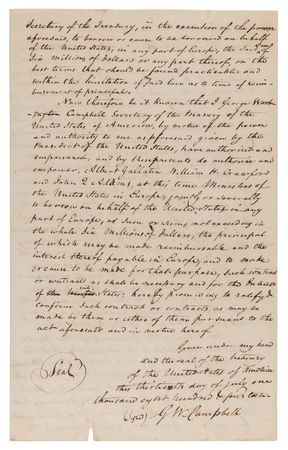 Secretary of the Treasury, in the execution of the power
aforesaid, to borrow or cause to be borrowed on behalf
of the United States, in any part of Europe, the said sum of
Six millions of Dollars or any part thereof, on the
best terms that should be found practicable and
within the limitation of said law as to time of reim-
bursement of principal.
Now therefore be it known that I George Wash-
ington Campbell Secretary of the Treasury of the
United States of America, by virtue of the power
and authority to me as aforesaid given by the
President of the United States, have authorised and
empowered, and by these presents do authorise and
empower, Albert Gallatin William H. Crawford
and John Q Adams, at this time Ministers of
the United States in Europe, jointly or severally
to borrow on behalf of the United States, in any
part of Europe, a sum or sums not exceeding in
the whole Six Millions of dollars, the principal
of which may be made reimbursable and the
interest thereof payable in Europe, and to make
or cause to be made for that purpose, such contract
or contracts as shall be necessary and for the Interest
of the United States: hereby promising to ratify &
confirm such contract or contracts as may be
made by them or either of them pursuant to the
act aforesaid and in virtue hereof.
Given under my hand
and the seal of the treasury
of the United States of America
this thirtieth day of July one
thousand eight hundred & fourteen.
Seal
G W. Campbell